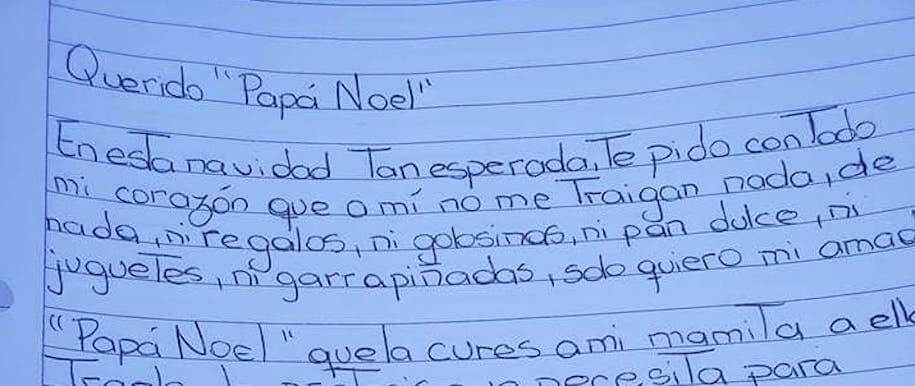 Querido "Papá Noel"
En esta navidad Tan esperada, Te pido con Todo
mi corazón que a mí no me Traigan nada, de
nada, ni regalos, ni gobsinas, ni pan dulce, ni
jugueTes, ni garrapiñadas, solo quiero mi amad
"Papá Noel" que la cures a mi mamiTa a ell
necesiTa para